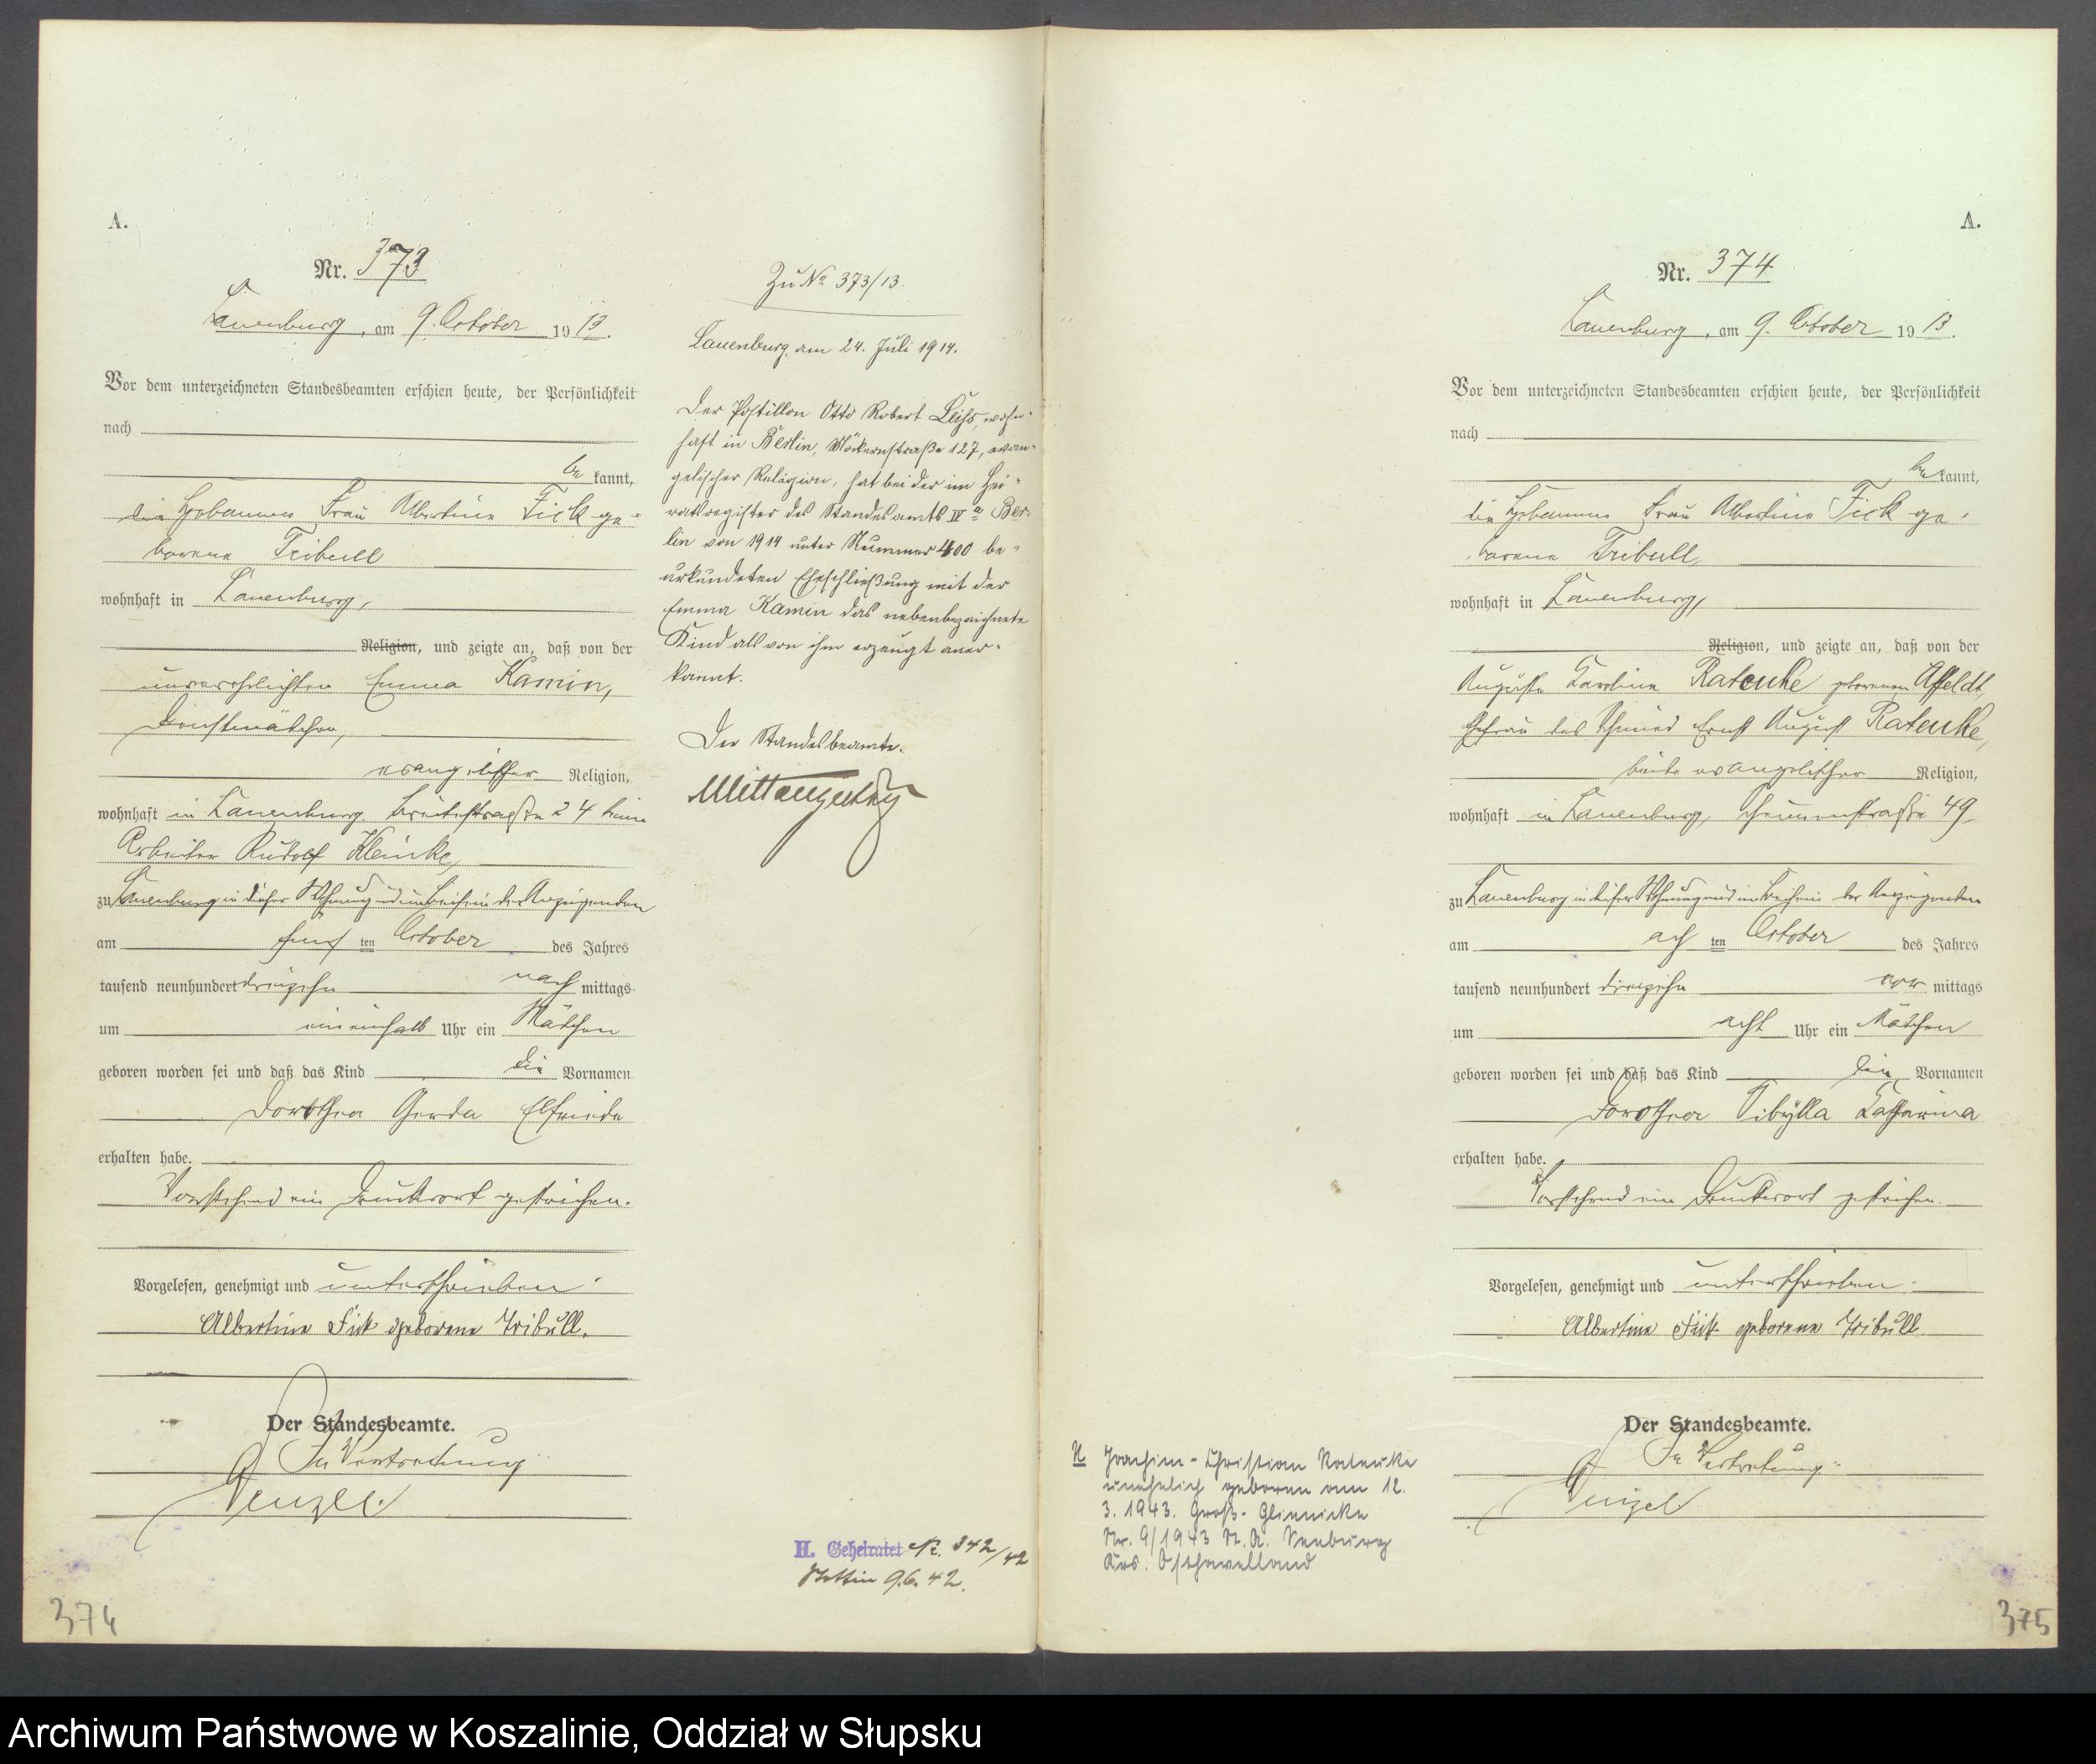 A.
Nr. 373
Lauenburg, am 9. October 1913.
Vor dem unterzeichneten Standesbeamten erschien heute, der Persönlichkeit
nach
be kannt,
die Hebamme Frau Albertine Fick ge-
borene Tribull
wohnhaft in Lauenburg,
Religion, und zeigte an, daß von der
unverehelichten Emma Kamin,
Dienstmädchen,
evangelischer Religion,
wohnhaft in Lauenburg, Breitestraße 24 beim
Arbeiter Rudolf Kleinke,
zu Lauenburg in dieser Wohnung und im Beisein der Anzeigenden
am fünf ten October des Jahres
tausend neunhundert dreizehn nach mittags
um eineinhalb Uhr ein Mädchen
geboren worden sei und daß das Kind die Vornamen
Dorothea Gerda Elfriede
erhalten habe.
Vorstehend ein Druckwort gestrichen.
Vorgelesen, genehmigt und unterschrieben
Albertine Fick geborene Tribull.
Der Standesbeamte.
In Vertretung
Wenzel
374
Zu No 373/13.
Lauenburg am 24. Juli 1914.
Der Postillon Otto Robert wohn-
haft in Berlin, Möckernstraße 127, evan-
gelischer Religion, hat bei der im Hei-
ratsregister des Standesamts IV a Ber-
lin von 1914 unter Nummer 400 be-
urkundeten Eheschließung mit der
Emma Kamin das nebenbezeichnete
Kind als von ihm erzeugt aner-
kannt.
Der Standesbeamte.
H. Geheiratet Nr. 342/42
Stettin 9.6.42.
A.
Nr. 374
Lauenburg, am 9. October 1913.
Vor dem unterzeichneten Standesbeamten erschien heute, der Persönlichkeit
nach
be kannt,
die Hebamme Frau Albertine Fick ge-
borene Tribull,
wohnhaft in Lauenburg,
Religion, und zeigte an, daß von der
Auguste Karoline Ratenke geborenen Affeldt,
Ehefrau des Schmied Ernst August Ratenke,
beide evangelischer Religion,
wohnhaft in Lauenburg, Scheunenstraße 49,
zu Lauenburg in dieser Wohnung und im Beisein der Anzeigenden
am ach ten October des Jahres
tausend neunhundert dreizehn vor mittags
um acht Uhr ein Mädchen
geboren worden sei und daß das Kind die Vornamen
Dorothea Sibÿlla Katharina
erhalten habe.
Vorstehend ein Druckwort gestrichen.
Vorgelesen, genehmigt und unterschrieben
Albertine Fick geborene Tribull.
Der Standesbeamte.
In Vertretung:
Wenzel
K Joachim-Christian Ratenke
unehelich geboren am 12.
3. 1943. Groß-Glienicke
Nr. 9/1943 St. A. Seeburg
Krs. Osthavelland
375
Archiwum Państwowe w Koszalinie, Oddział w Słupsku